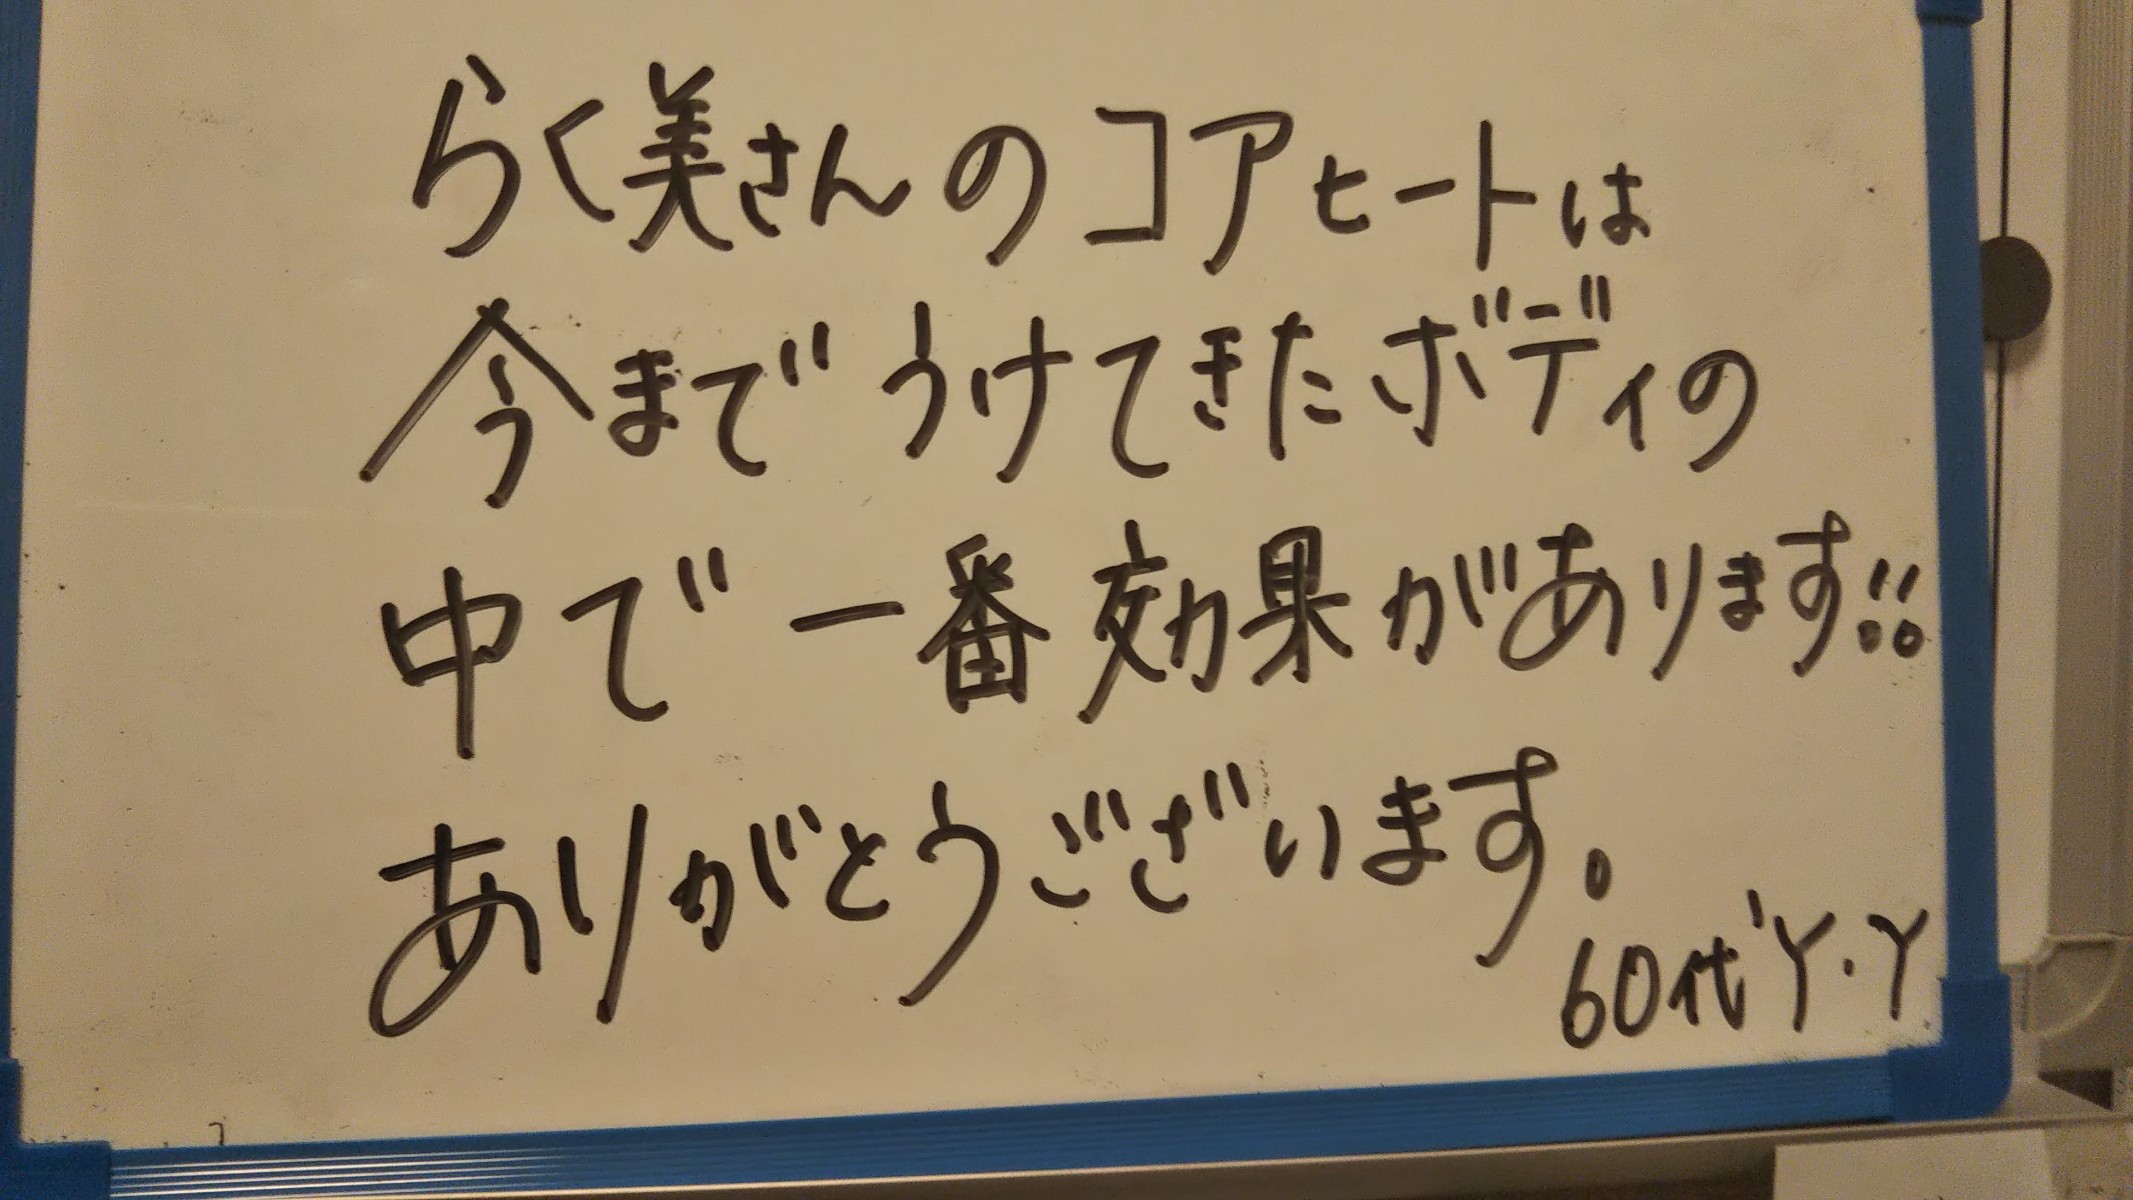 らく美さんのコアヒートは
今までうけてきたボディの
中で一番効果があります!!
ありがとうございます。
60代 Y・Y